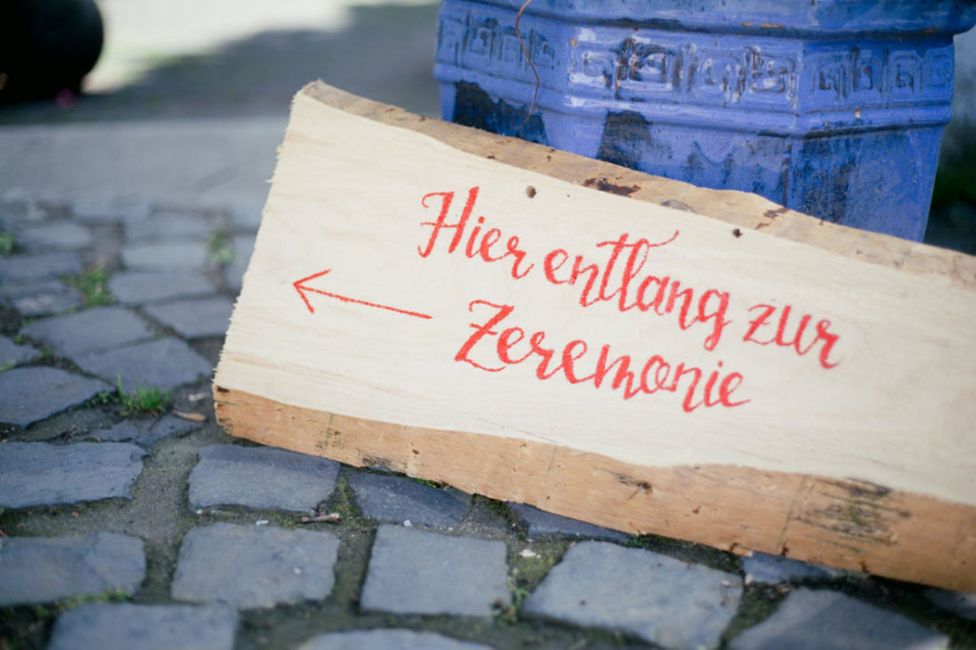 Hier entlang zur
Zeremonie